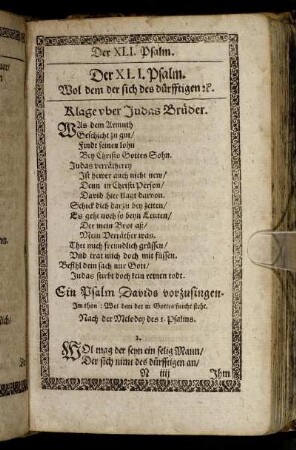 Der XLI. Psalm.
Der XLI. Psalm.
Wol dem der sich des dürfftigen ꝛc.
Klage vber Judas Brüder.
WAs dem Armuth
Geschicht zu gut/
Findt seinen lohn
Bey Christo Gottes Sohn.
Judas verrätherey
Ist hewer auch nicht new/
Denn in Christi Person/
David hier klagt darvon.
Schick dich darzu bey zeiten/
Es geht noch so beyn Leuten/
Der mein Brot aß/
Mein Verräther was.
Thet mich freundlich grüssen/
Und trat mich doch mit füssen.
Befihl dein sach nur Gott/
Judas stirbt doch kein rechten todt.
Ein Psalm Davids vorzusingen.
Im thon: Wol dem der in Gottesfurcht steht.
Nach der Melodey des 1. Psalms.
1.
WOl mag der seyn ein selig Mann/
Der sich nimt des dürfftigen an/
N iiij
Ihm